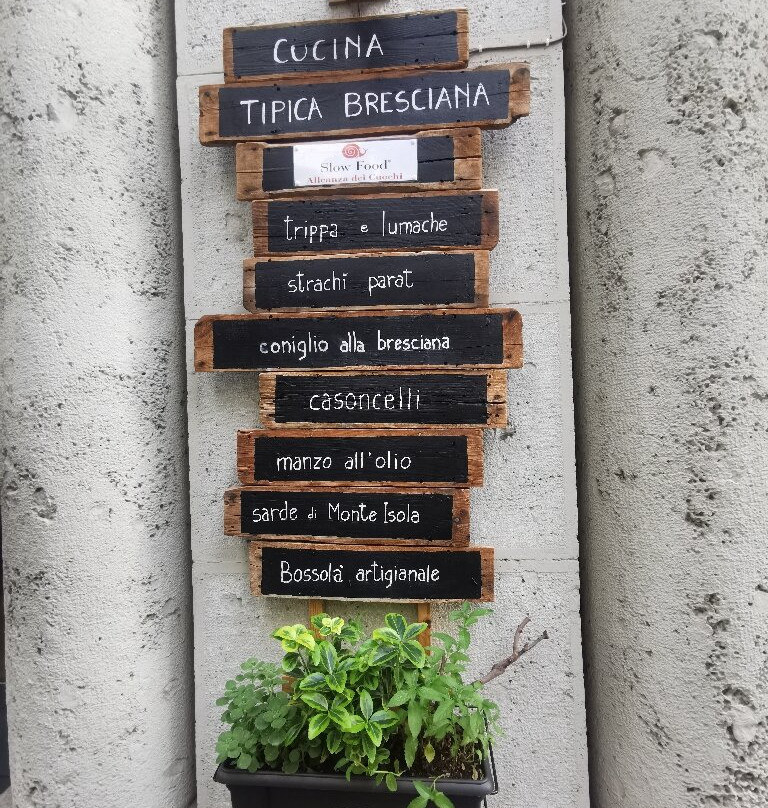 CUCINA
TIPICA BRESCIANA
Slow Food®
Alleanza dei Cuochi
trippa e lumache
strachi parat
coniglio alla bresciana
casoncelli
manzo all'olio
sarde di Monte Isola
Bossola' artigianale